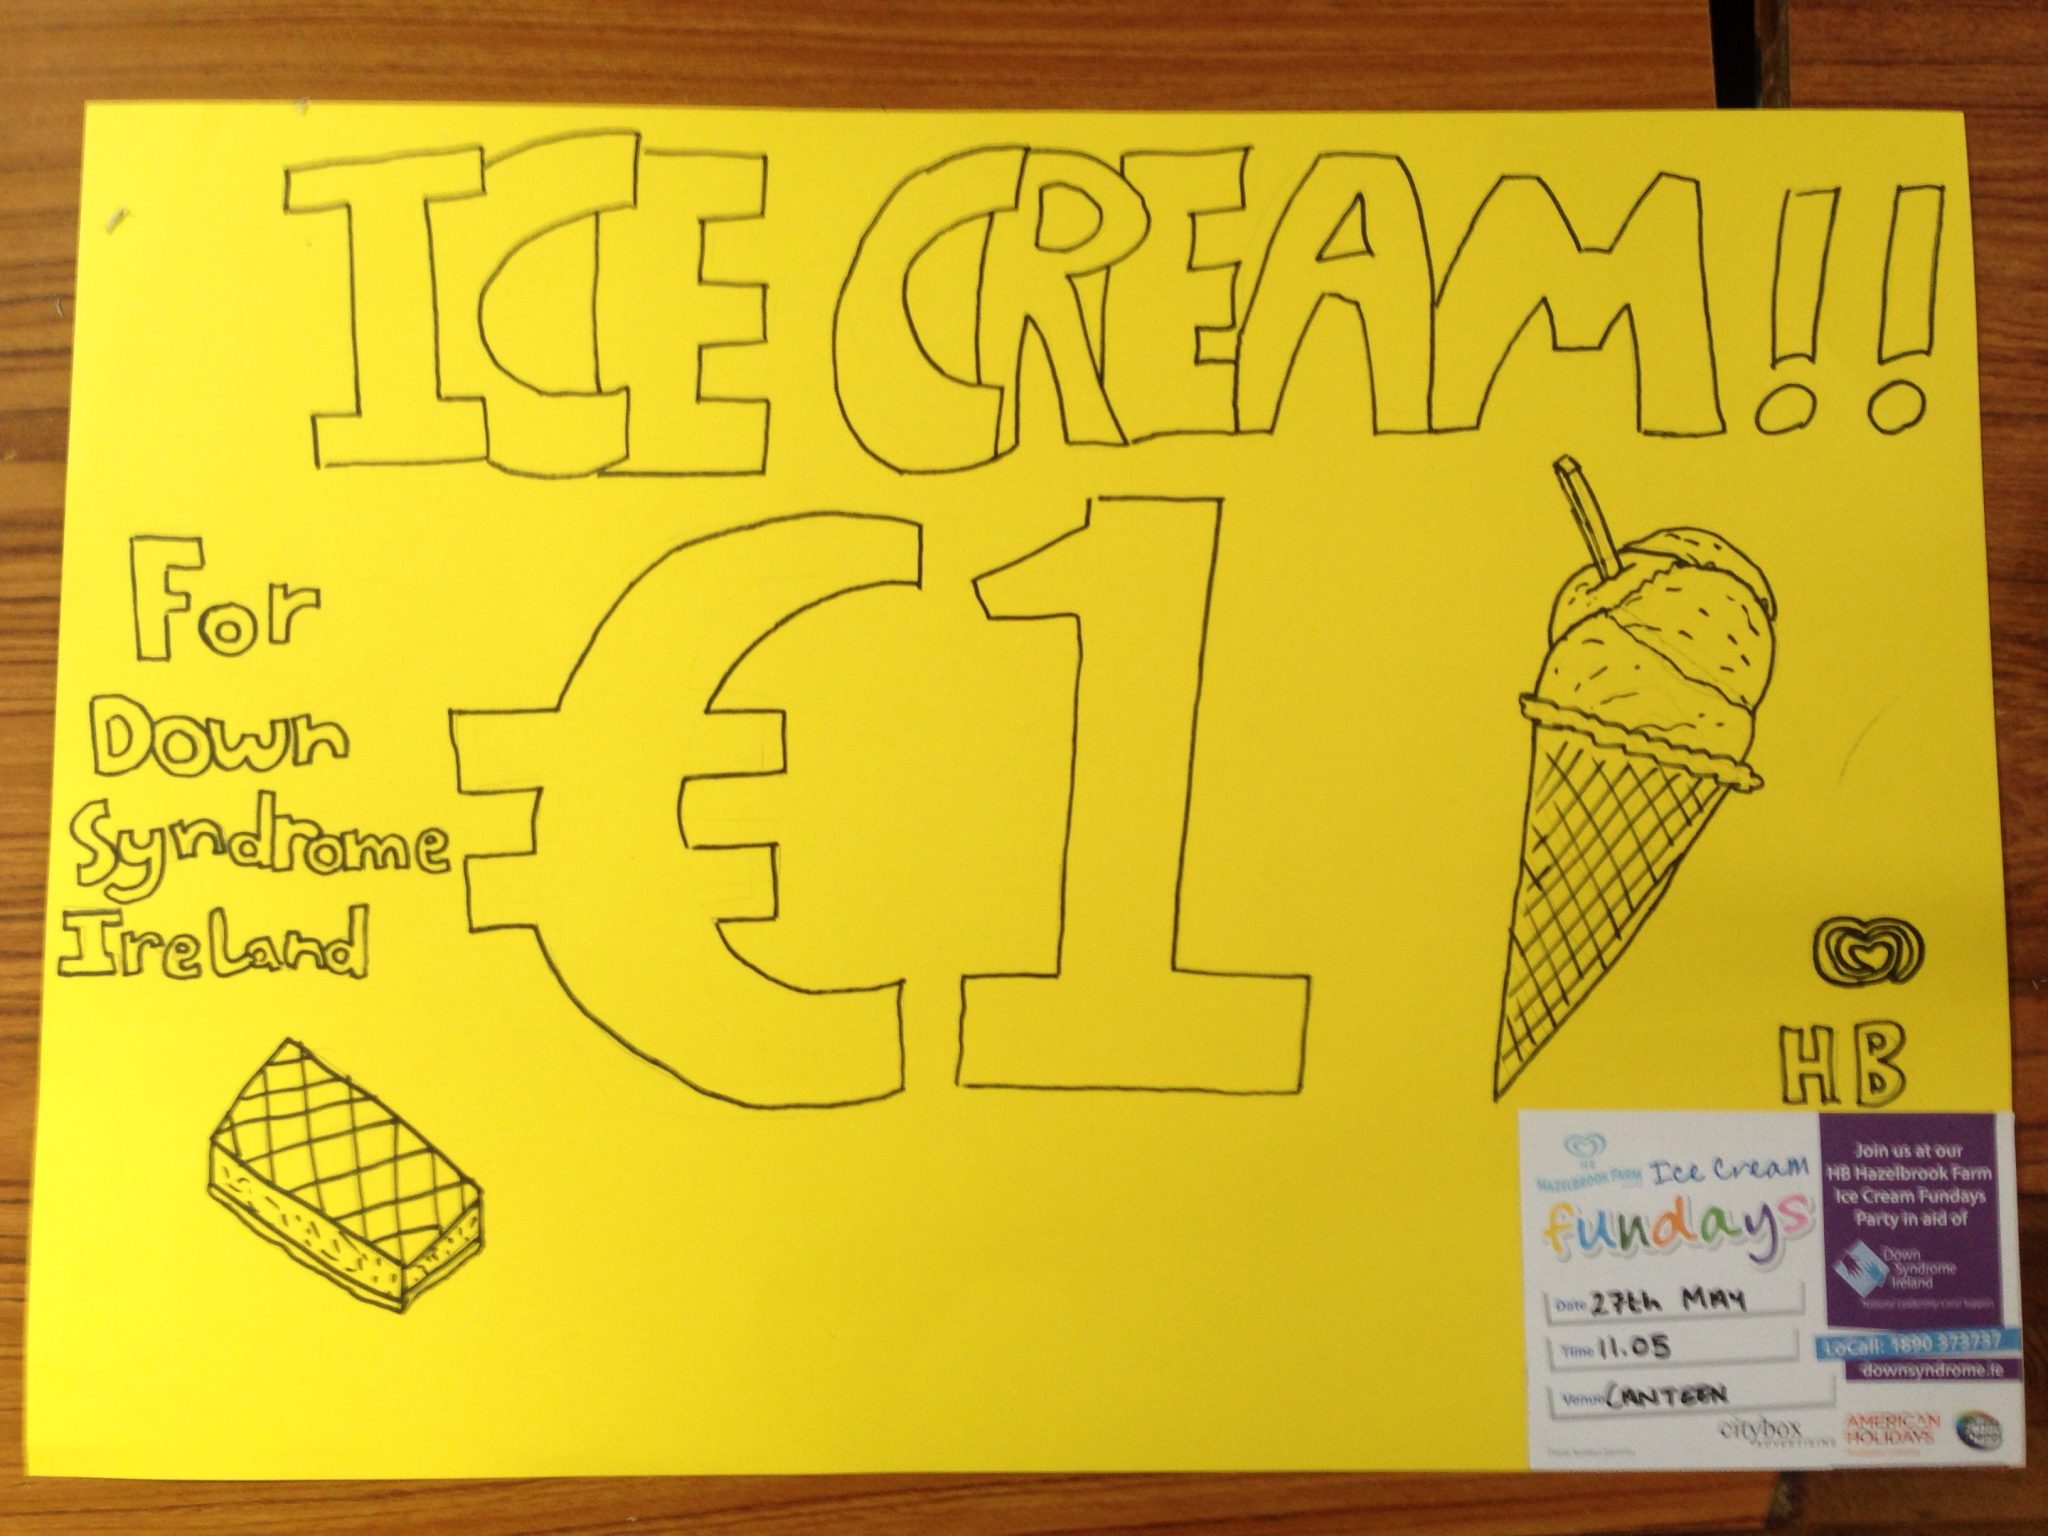 ICE CREAM!!
For
Down
Syndrome
Ireland
€1
HB
HB
HAZELBROOK FARM
Ice Cream
fundays
Date 27th MAY
Time 11.05
Venue CANTEEN
Join us at our
HB Hazelbrook Farm
Ice Cream Fundays
Party in aid of
Down
Syndrome
Ireland
LoCall: 1890 373737
downsyndrome.ie
citybox
ADVERTISING
AMERICAN
HOLIDAYS